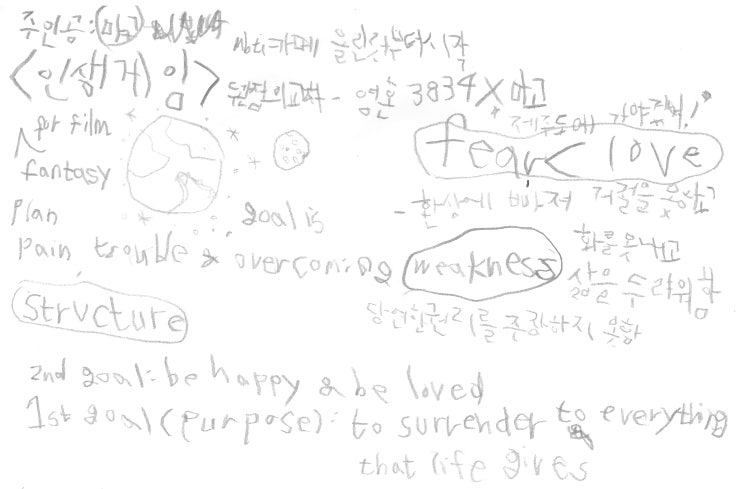 주인공: 마고
noti카페 올린것부터 시작
<인생게임>
원점의 교차 - 영호 3834 X 마고
for film
fantasy
제주도에 가야겠어!
fear < love
- 환상에 빠져 거절을 못하고
화를 못내고
삶을 두려워함
plan
goal is
pain trouble & overcoming
weakness
당연한 권리를 주장하지 못함
structure
2nd goal: be happy & be loved
1st goal (purpose): to surrender to everything
that life gives